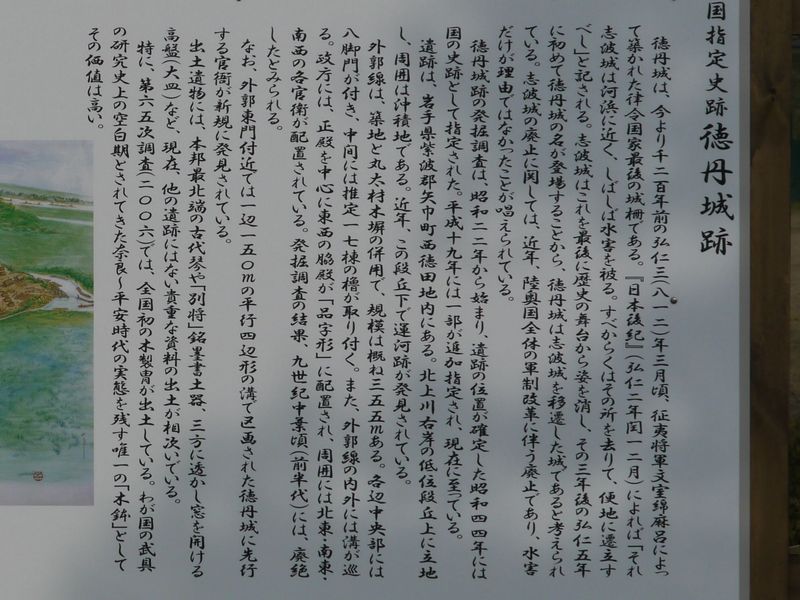 国指定史跡徳丹城跡
徳丹城は、今より千二百年前の弘仁三(八一二)年三月頃、征夷将軍文室綿麻呂によっ
て築かれた律令国家最後の城柵である。『日本後紀』(弘仁二年閏一二月)によれば「それ
志波城は河浜に近く、しばしば水害を被る。すべからくはその所を去りて、便地に遷立す
べし」と記される。志波城はこれを最後に歴史の舞台から姿を消し、その三年後の弘仁五年
に初めて徳丹城の名が登場することから、徳丹城は志波城を移遷した城であると考えられ
ている。志波城の廃止に関しては、近年、陸奥国全体の軍制改革に伴う廃止であり、水害
だけが理由ではなかったことが唱えられている。
徳丹城跡の発掘調査は、昭和二二年から始まり、遺跡の位置が確定した昭和四四年には
国の史跡として指定された。平成十九年には一部が追加指定され、現在に至っている。
遺跡は、岩手県紫波郡矢巾町西徳田地内にある。北上川右岸の低位段丘上に立地
し、周囲は沖積地である。近年、この段丘下で運河跡が発見されている。
外郭線は、築地と丸太材木塀の併用で、規模は概ね三五五mある。各辺中央部には
八脚門が付き、中間には推定一七棟の櫓が取り付く。また、外郭線の内外には溝が巡
る。政庁には、正殿を中心に東西の脇殿が「品字形」に配置され、周囲には北東・南東・
南西の各官衙が配置されている。発掘調査の結果、九世紀中葉頃(前半代)には、廃絶
したとみられる。
なお、外郭東門付近では一辺一五〇mの平行四辺形の溝で区画された徳丹城に先行
する官衙が新規に発見されている。
出土遺物には、本邦最北端の古代琴や「別将」銘墨書土器、三方に透かし窓を開ける
高盤(大皿)など、現在、他の遺跡にはない貴重な資料の出土が相次いでいる。
特に、第六五次調査(二〇〇六)では、全国初の木製冑が出土している。わが国の武具
の研究史上の空白期とされてきた奈良～平安時代の実態を残す唯一の「木鉢」として
その価値は高い。